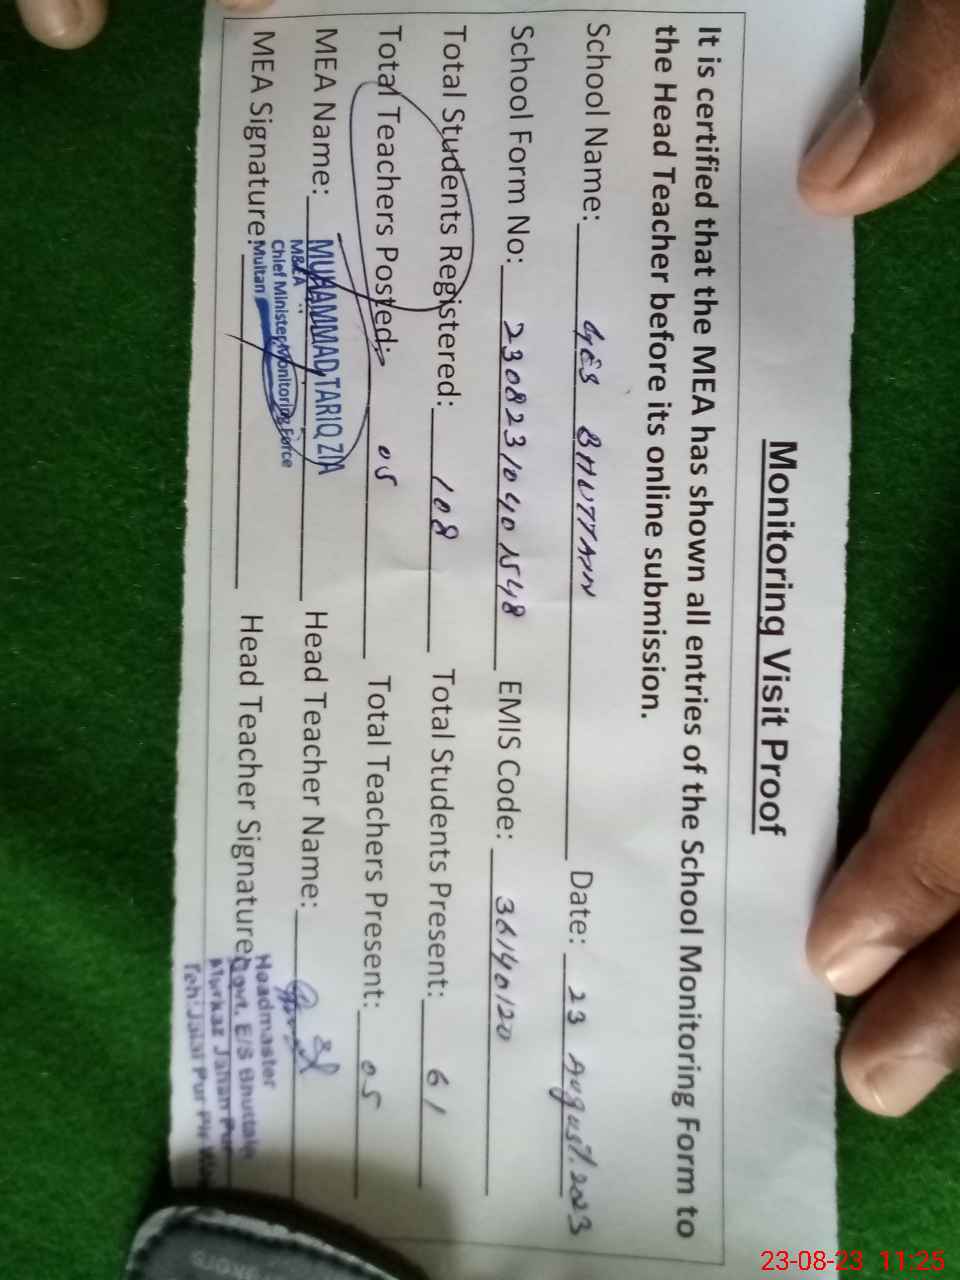 Monitoring Visit Proof
It is certified that the MEA has shown all entries of the School Monitoring Form to
the Head Teacher before its online submission.
School Name: GES BHUTTANN Date: 23 August. 2023
School Form No: 23082310401548 EMIS Code: 36140120
Total Students Registered: 108 Total Students Present: 61
Total Teachers Posted: 05 Total Teachers Present: 05
MEA Name: MUHAMMAD TARIQ ZIA Head Teacher Name:
M&EA
Chief Minister Monitoring Force
Multan
MEA Signature: Head Teacher Signature:
Headmaster
Govt. E/S Bhuttann
Markaz Jahan Pur
Teh: Jalal Pur Pir Wala
23-08-23 11:25